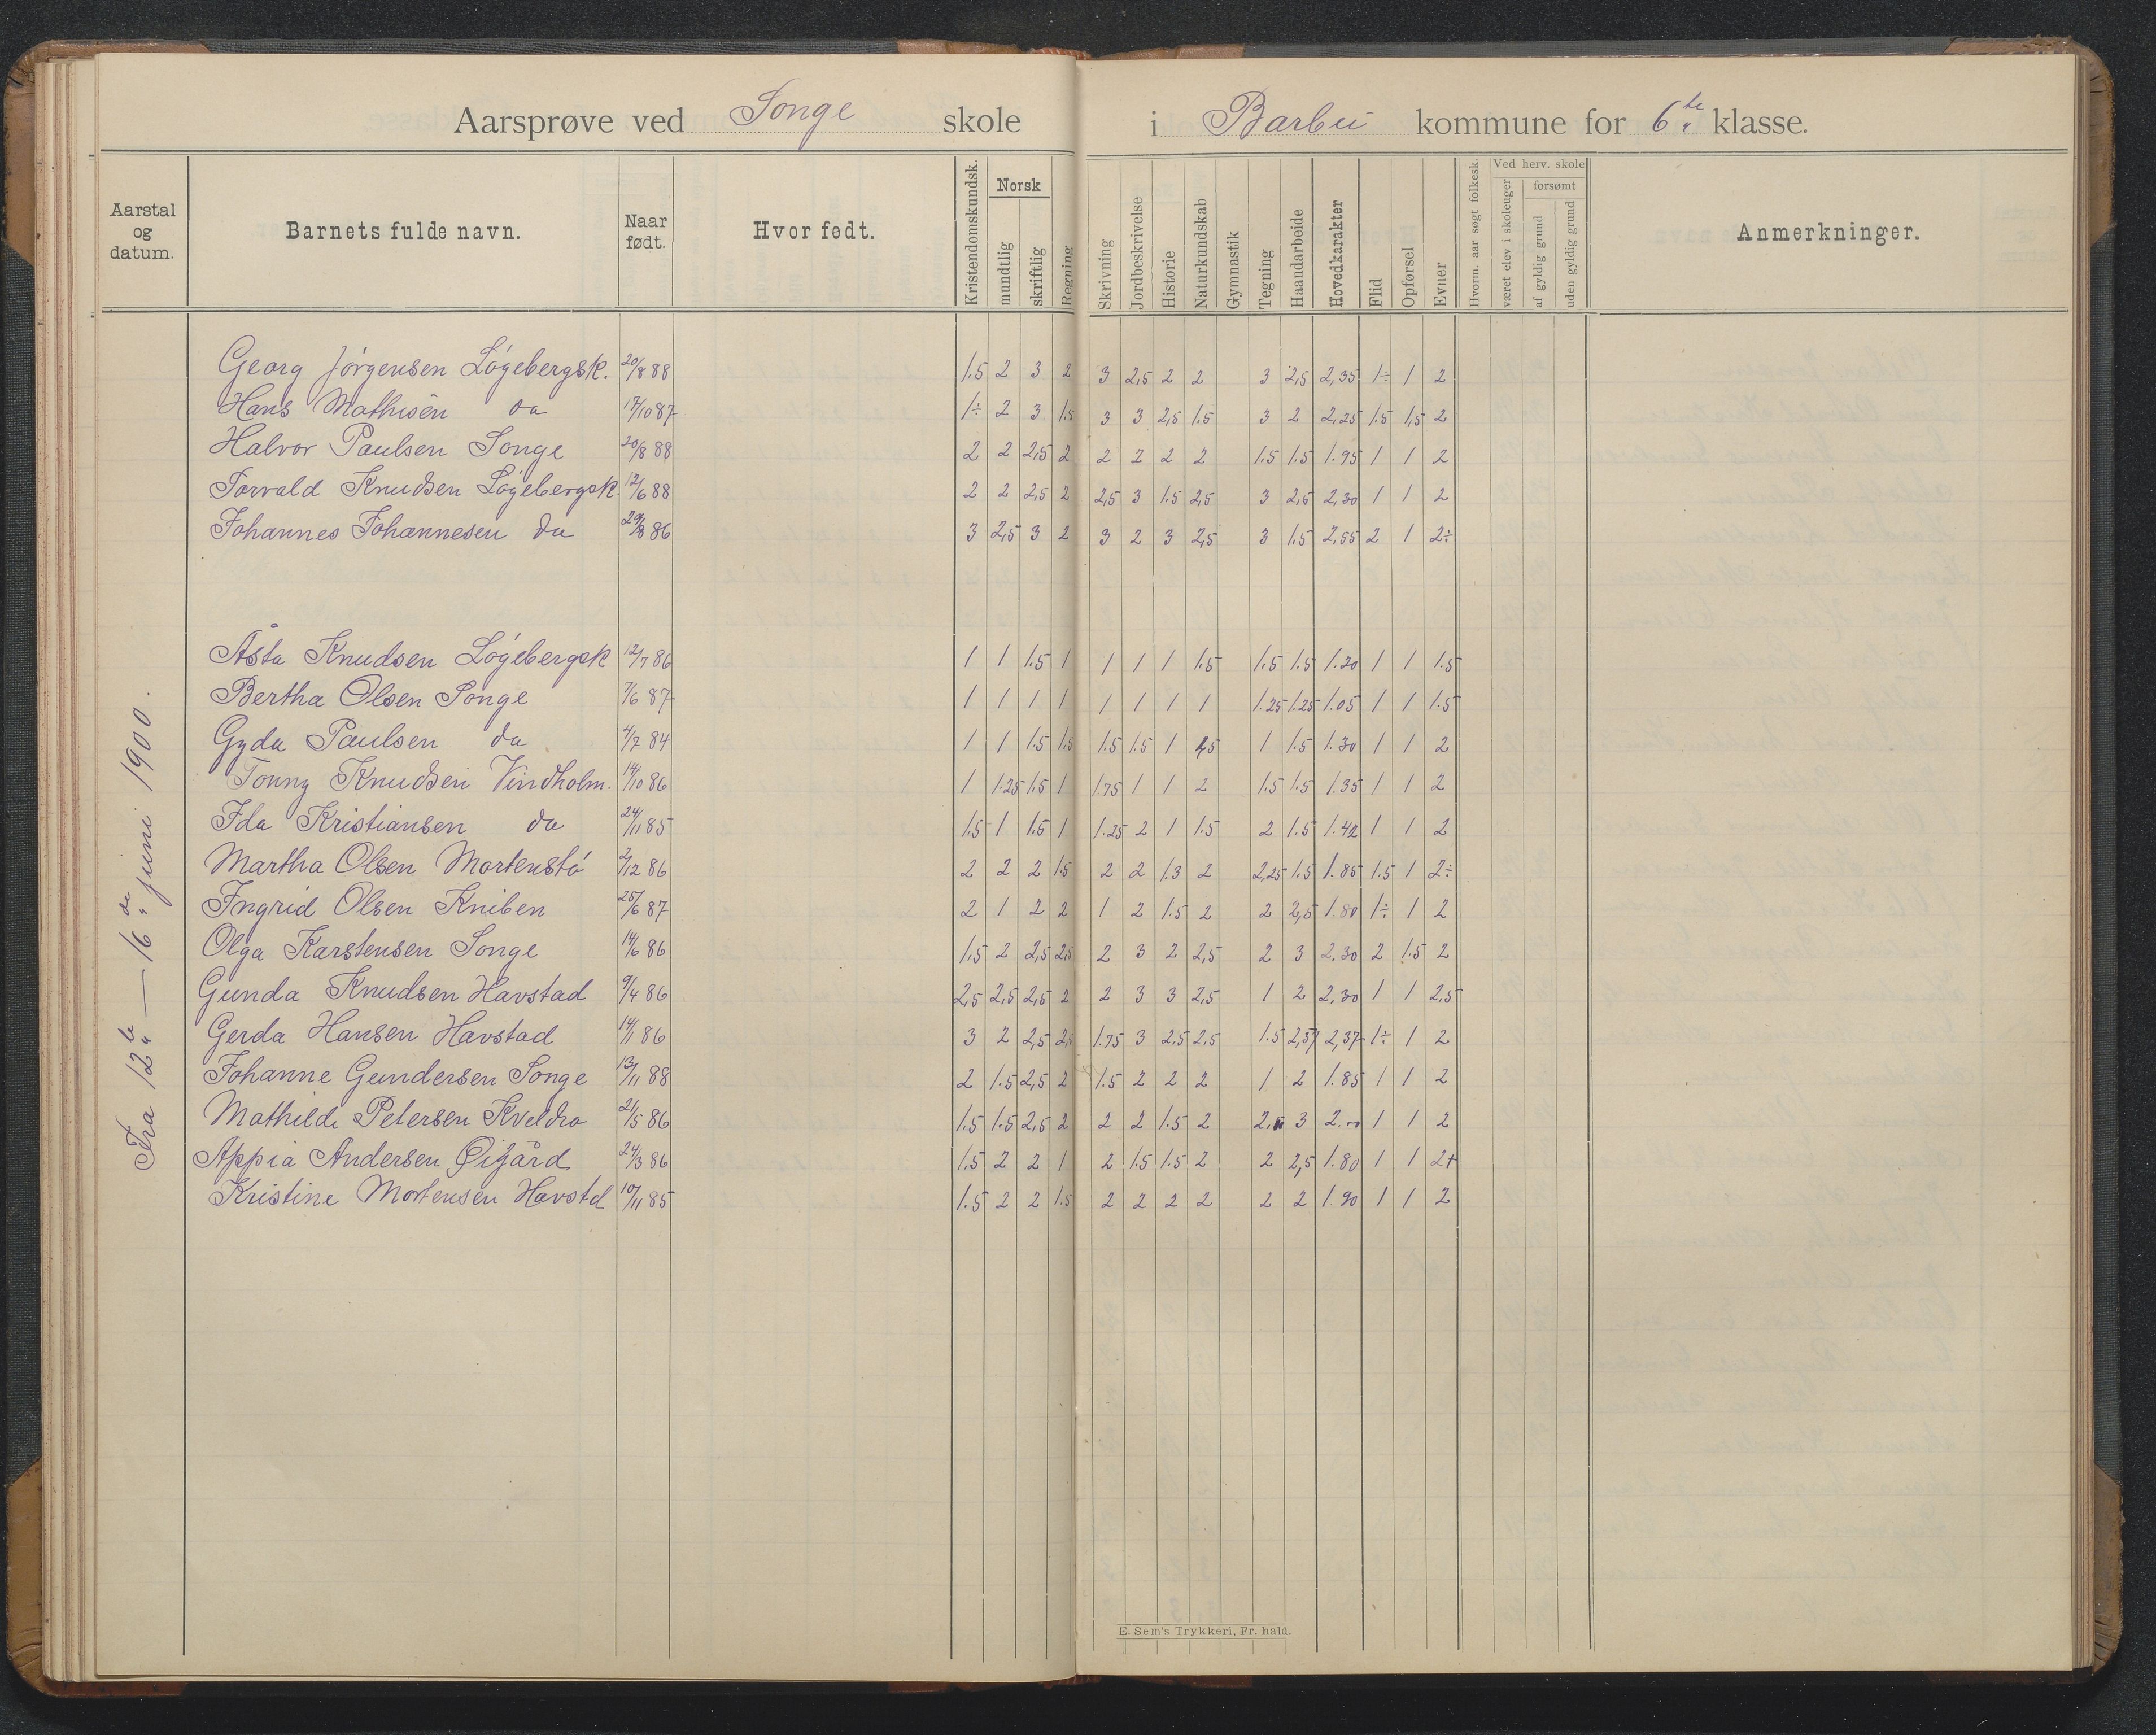 Aarsprøve ved Songe skole i Barbu kommune for 6te klasse.
Aarstal og datum. Barnets fulde navn. Naar født. Hvor født. Kristendomskundsk. Norsk mundtlig skriftlig Regning Skrivning Jordbeskrivelse Historie Naturkundskab Gymnastik Tegning Haandarbeide Hovedkarakter Flid Opførsel Evner Hvorm. aar søgt folkesk. Ved herv. skole været elev i skoleuger forsømt af gyldig grund uden gyldig grund Anmerkninger.
Fra 12te — 16de juni 1900.
Georg Jørgensen Løgebergsk. 20/8 88 1.5 2 3 2 3 2,5 2 2 3 2,5 2,35 1÷ 1 2
Hans Mathisen do 17/10 87 1÷ 2 3 1.5 3 3 2,5 1.5 3 2 2,25 1.5 1,5 2
Halvor Paulsen Songe 20/8 88 2 2 2,5 2 2 2 2 2 1.5 1.5 1.95 1 1 2
Torvald Knudsen Løgebergsk. 12/6 88 2 2 2,5 2 2,5 3 1.5 2,5 3 2,5 2,30 1 1 2
Johannes Johannesen do 29/8 86 3 2,5 3 2 3 2 3 2,5 3 1.5 2,55 2 1 2÷
Åsta Knudsen Løgebergsk 12/7 86 1 1 1.5 1 1 1 1 1.5 1.5 1.5 1.20 1 1 1.5
Bertha Olsen Songe 7/6 87 1 1 1 1 1 1 1 1 1.25 1.25 1.05 1 1 1.5
Gyda Paulsen do 4/7 84 1 1 1.5 1.5 1.5 1.5 1 1,5 1 1.5 1.30 1 1 2
Tonny Knudsen Vindholm. 14/10 86 1 1.25 1.5 1 1.75 1 1 2 1.5 1.5 1.35 1 1 2
Ida Kristiansen do 24/11 85 1.5 1 1.5 1 1.25 2 1 1.5 2 1.5 1.42 1 1 2
Martha Olsen Mortenstø 2/12 86 2 2 2 1.5 2 2 1.3 2 2,25 1.5 1.85 1.5 1 2÷
Ingrid Olsen Kniben 25/6 87 2 1 2 2 1 2 1.5 2 2 2,5 1.80 1÷ 1 2
Olga Karstensen Songe 14/6 86 1.5 2 2,5 2,5 2 3 2 2,5 2 3 2.30 2 1.5 2
Gunda Knudsen Havstad 9/4 86 2,5 2,5 2,5 2 2 3 3 2,5 1 2 2,30 1 1 2,5
Gerda Hansen Havstad 14/1 86 3 2 2,5 2,5 1.75 3 2.5 2.5 1.5 2,37 2,37 1÷ 1 2
Johanne Gundersen Songe 13/11 88 2 1.5 2,5 2 1.5 2 2 2 1 2 1.85 1 1 2
Mathilde Petersen Kveldro 21/5 86 1.5 1.5 2,5 2 2 2 1.5 2 2. 3 2.00 1 1 2
Appia Andersen Øigård 24/3 86 1.5 2 2 1 2 1.5 1.5 2 2 2,5 1.80 1 1 2+
Kristine Mortensen Havstd 10/11 85 1.5 2 2 1.5 2 2 2 2 2 2 1.90 1 1 2
E. Sem's Trykkeri, Fr. hald.